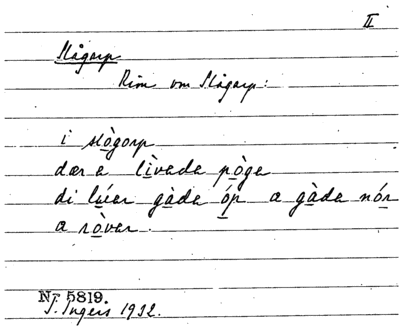 II
Slågarp
Rim om Slågarp:
i slògorp
dær e lìveda pòga
di lúer gàda óp a gàda nór
a ròvar.
Nr 5819.
I. Ingers 1932.